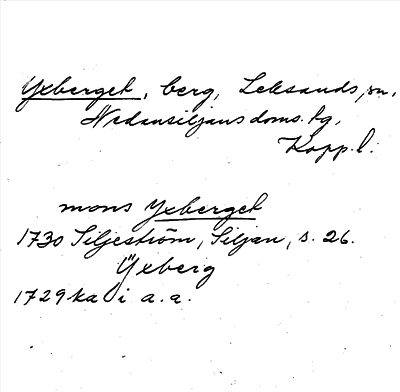 Yxberget, berg, Leksands sn,
Nedansiljans doms. tg,
Kopp. l.
mons Yxberget
1730 Siljeström, Siljan, s. 26.
Yxberg
1729 ka i a.a.